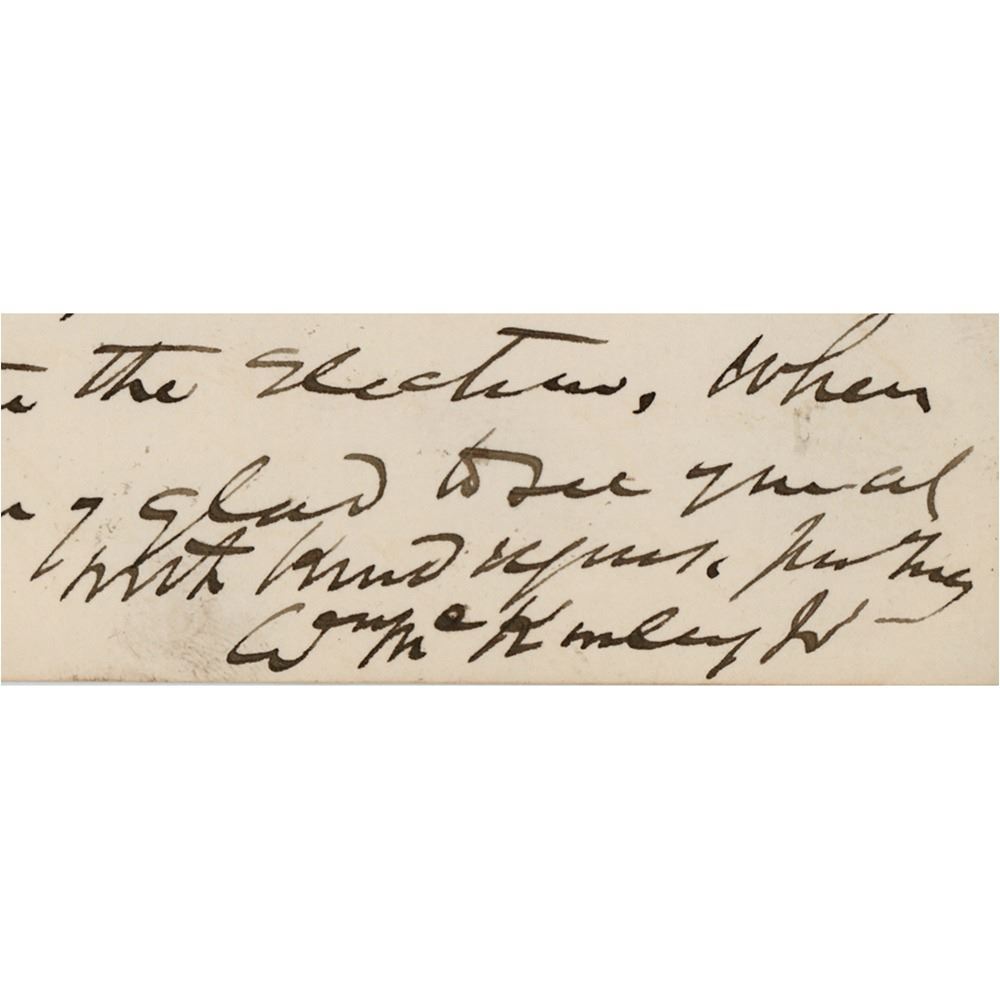 the Election, When
glad to see you at
with kind regards, 
Wm McKinley Jr